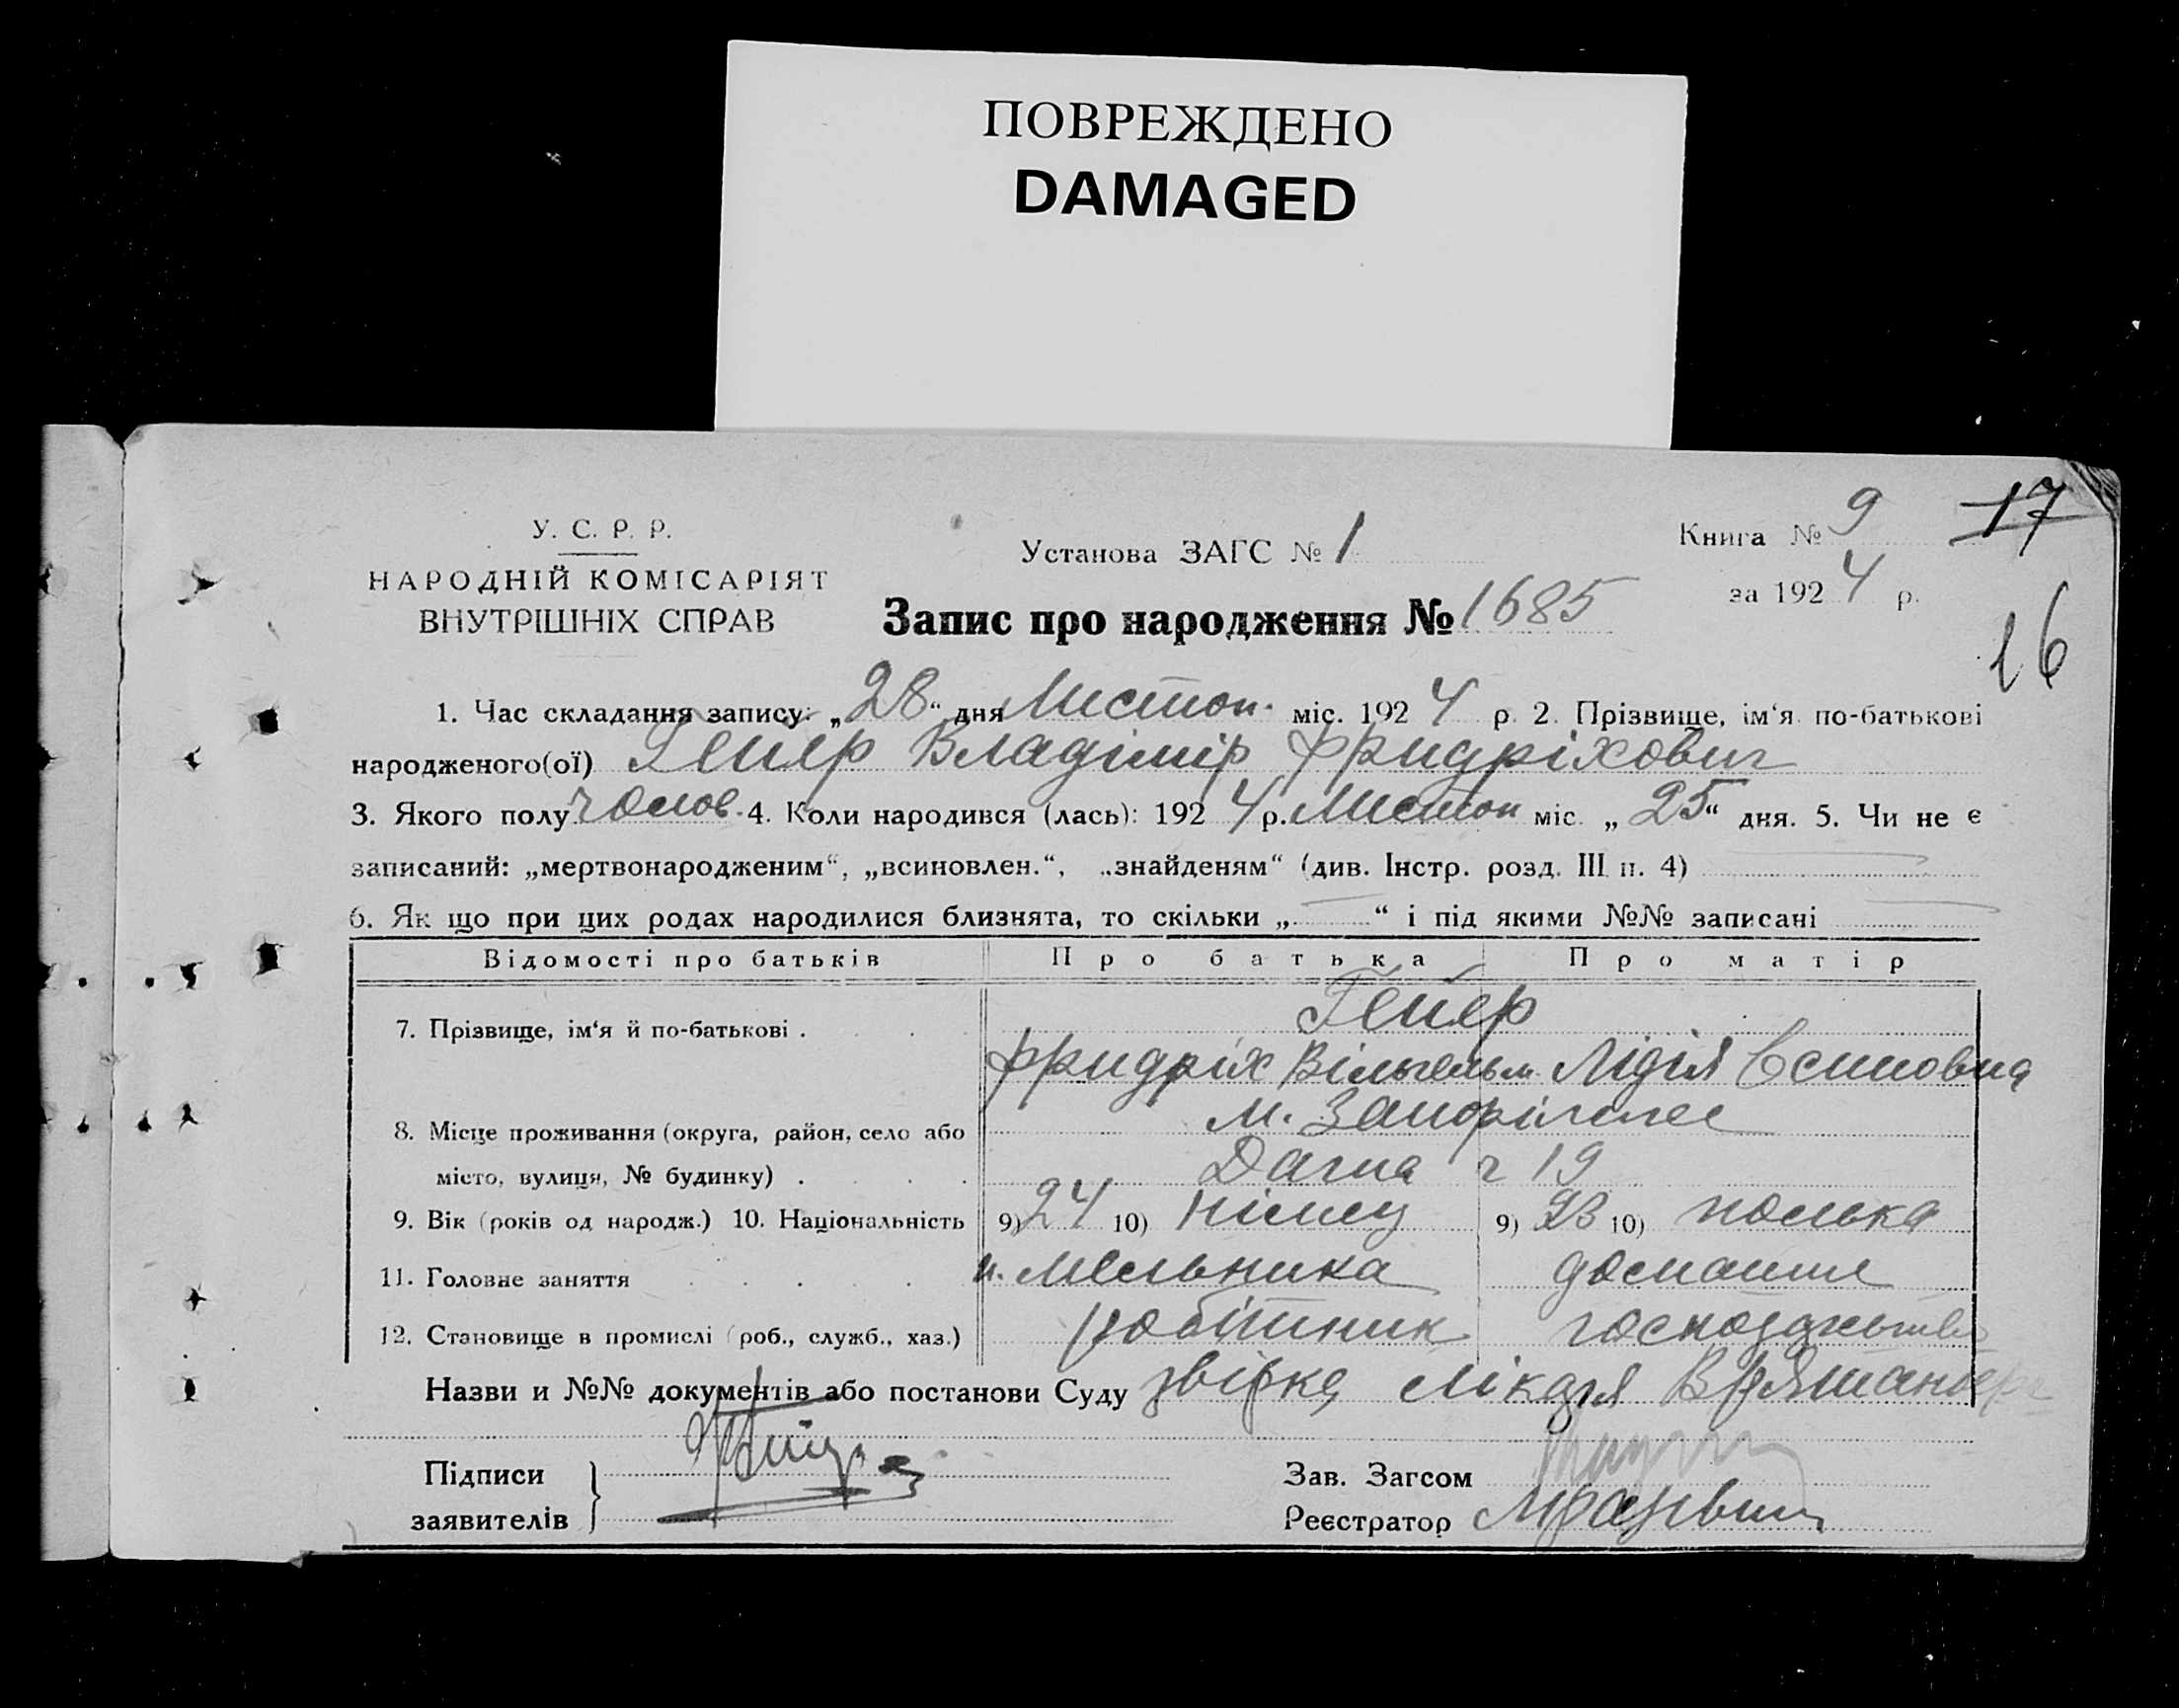 ПОВРЕЖДЕНО
DAMAGED
У. С. Р. Р.
НАРОДНІЙ КОМІСАРІЯТ
ВНУТРІШНІХ СПРАВ
Установа ЗАГС № 1
Запис про народження № 1685
Книга № 9
за 1924 р.
17
16
1. Час складання запису: „28“ дня Листоп. міс. 1924 р. 2. Прізвище, ім‘я по-батькові
народженого(ої) Гейер Владімір Фридріхович
3. Якого полу чолов. 4. Коли народився (лась): 1924 р. Листоп міс. „25“ дня. 5. Чи не є
записаний: „мертвонародженим“, „всиновлен.“, „знайденям“ (див. Інстр. розд. III п. 4)
6. Як що при цих родах народилися близнята, то скільки „—“ і під якими №№ записані —
Відомості про батьків Про батька Про матір
7. Прізвище, ім‘я й по-батькові . Гейер
Фридріх Вільгельм Лідія Осиповна
8. Місце проживання (округа, район, село або м. Запоріжжє
місто, вулиця, № будинку) . 19
9. Вік (років од народж.) 10. Національність 9) 24 10) Німец 9) 23 10) полька
11. Головне заняття п. мельника домашнє
12. Становище в промислі (роб., служб., хаз.) робітник господарство
Назви и №№ документів або постанови Суду лікаря
Підписи
заявителів
Зав. Загсом
Реєстратор